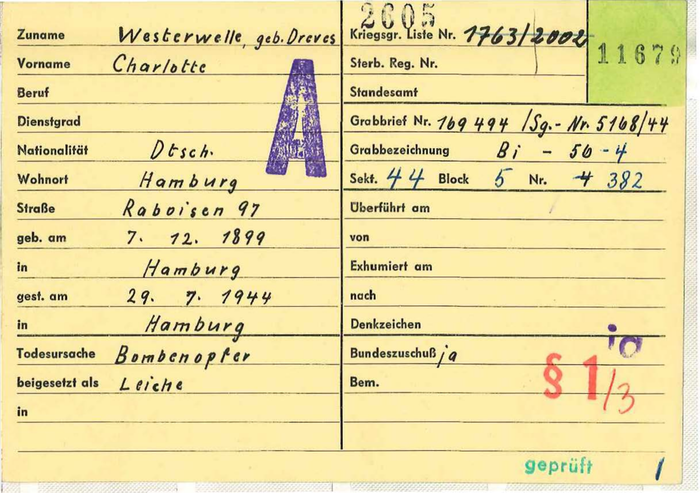 2605
Zuname Westerwelle, geb. Dreves
Vorname Charlotte
Beruf
Dienstgrad
Nationalität Dtsch.
Wohnort Hamburg
Straße Raboisen 97
geb. am 7. 12. 1899
in Hamburg
gest. am 29. 7. 1944
in Hamburg
Todesursache Bombenopfer
beigesetzt als Leiche
in
A
Kriegsgr. Liste Nr. 1763/2002
11679
Sterb. Reg. Nr.
Standesamt
Grabbrief Nr. 169494 /Sg.-Nr. 5168/44
Grabbezeichnung Bi - 50 - 4
Sekt. 44 Block 5 Nr. 4 382
Überführt am
von
Exhumiert am
nach
Denkzeichen
ja
Bundeszuschuß ja
Bem.
§ 1/3
geprüft
1